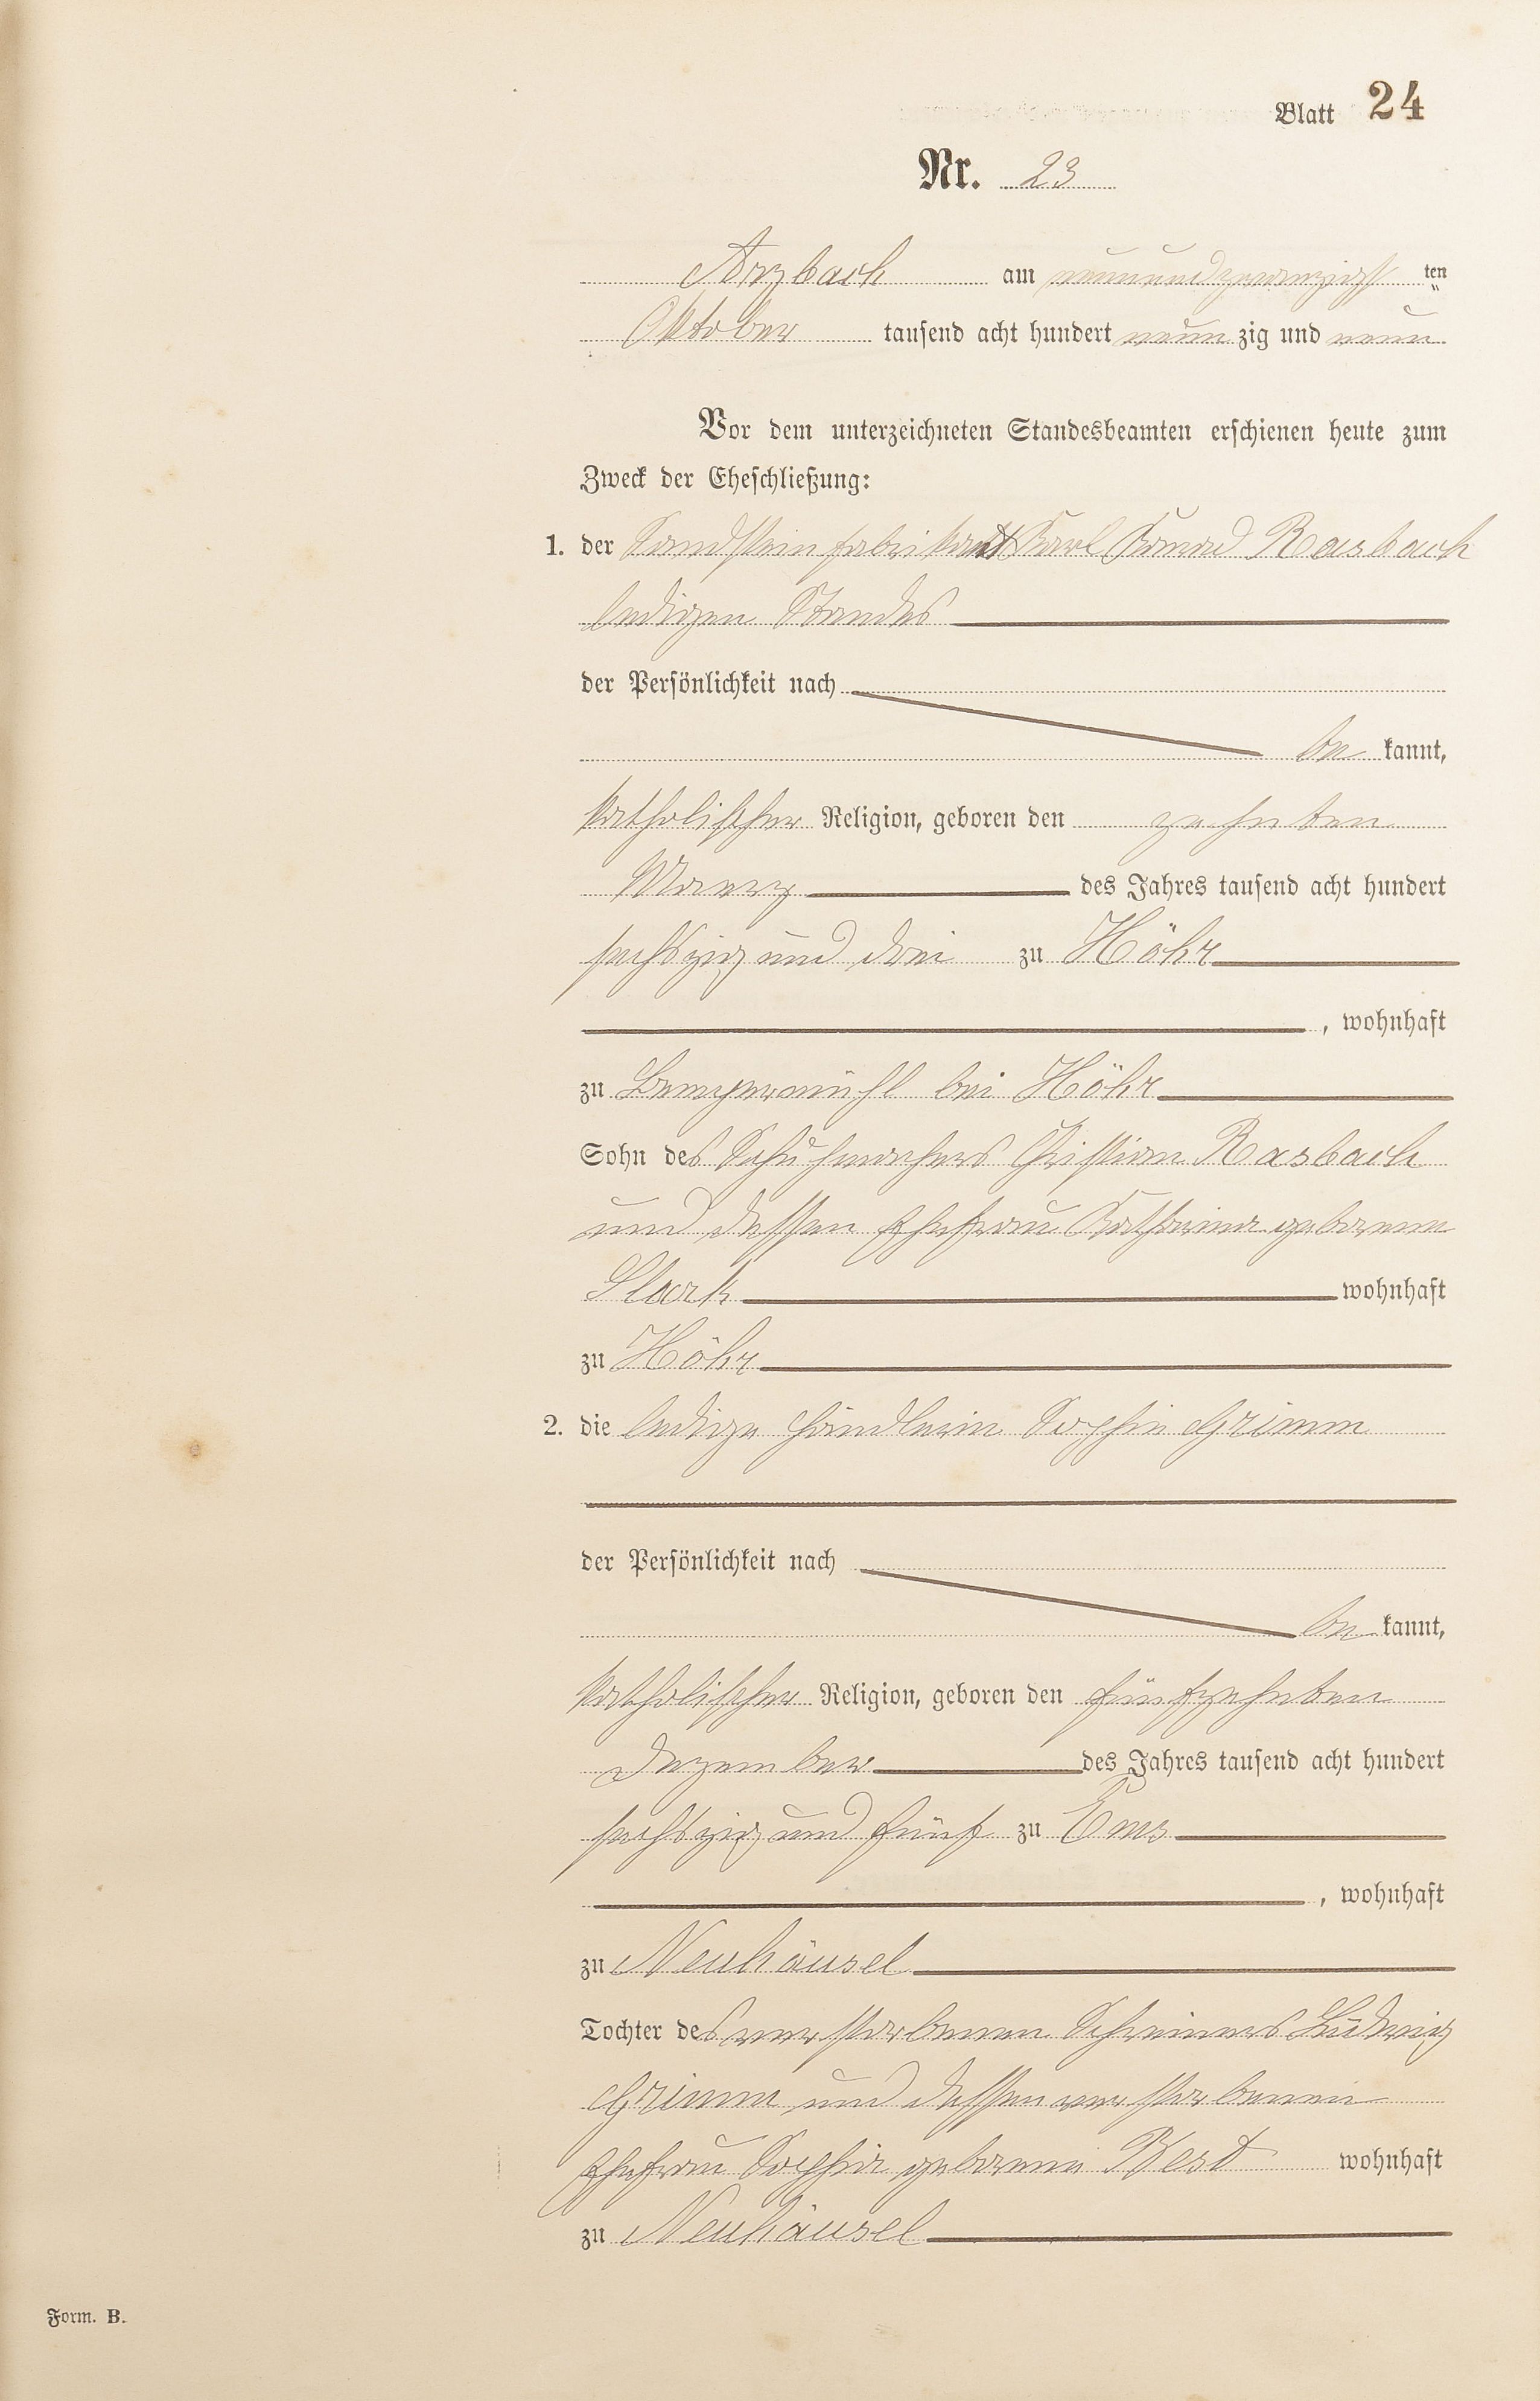 Blatt 24
Nr. 23
Arzbach am neunundzwanzigst ten
Oktober tausend acht hundert neun zig und neun
Vor dem unterzeichneten Standesbeamten erschienen heute zum
Zweck der Eheschließung:
1. der Sandsteinfabrikant Karl Konrad Rasbach
ledigen Standes
der Persönlichkeit nach
be kannt,
katholischer Religion, geboren den zehnten
Maerz des Jahres tausend acht hundert
sechszig und drei zu Höhr
, wohnhaft
zu bei Höhr
Sohn des Schuhmachers Christian Rasbach
und dessen Ehefrau Katharina geborene
wohnhaft
zu Höhr
2. die ledige Händlerin Sophie Grimm
der Persönlichkeit nach
be kannt,
katholischer Religion, geboren den fünfzehnten
Dezember des Jahres tausend acht hundert
sechszig und fünf zu Ems
, wohnhaft
zu Neuhäusel
Tochter des verstorbenen Schreiners Ludwig
Grimm und dessen verstorbenen
Ehefrau Sophia geborene Best wohnhaft
zu Neuhäusel
Form. B.